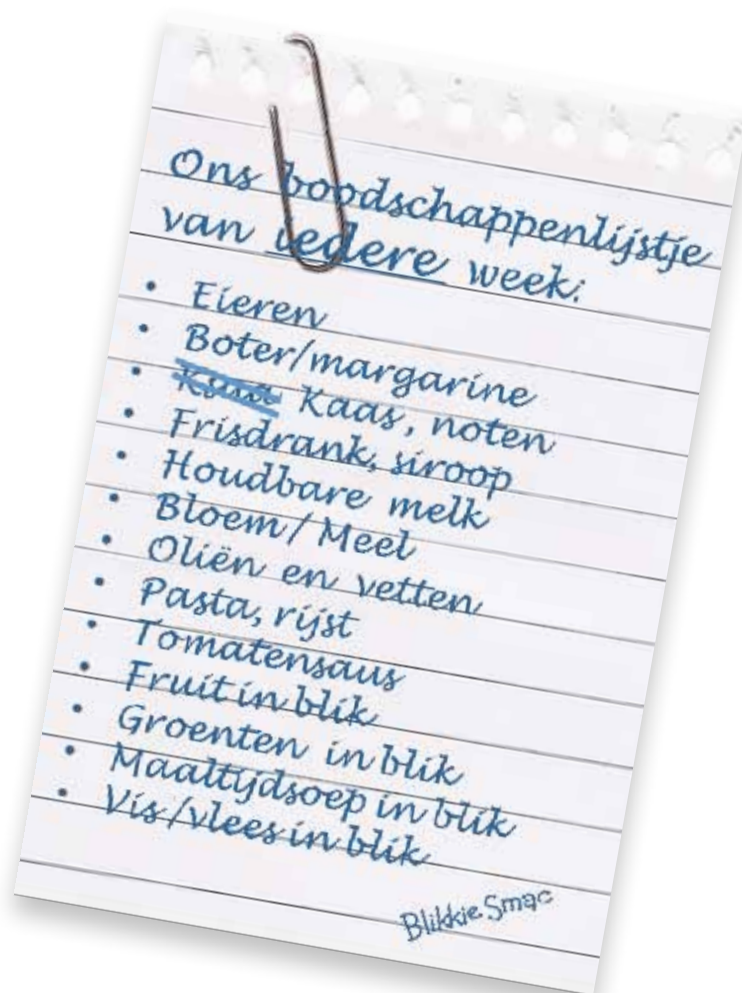 Ons boodschappenlijstje
van iedere week:
• Eieren
• Boter/margarine
• Kaas, noten
• Frisdrank, siroop
• Houdbare melk
• Bloem/Meel
• Oliën en vetten
• Pasta, rijst
• Tomatensaus
• Fruit in blik
• Groenten in blik
• Maaltijdsoep in blik
• Vis/vlees in blik
Blikkie Smac